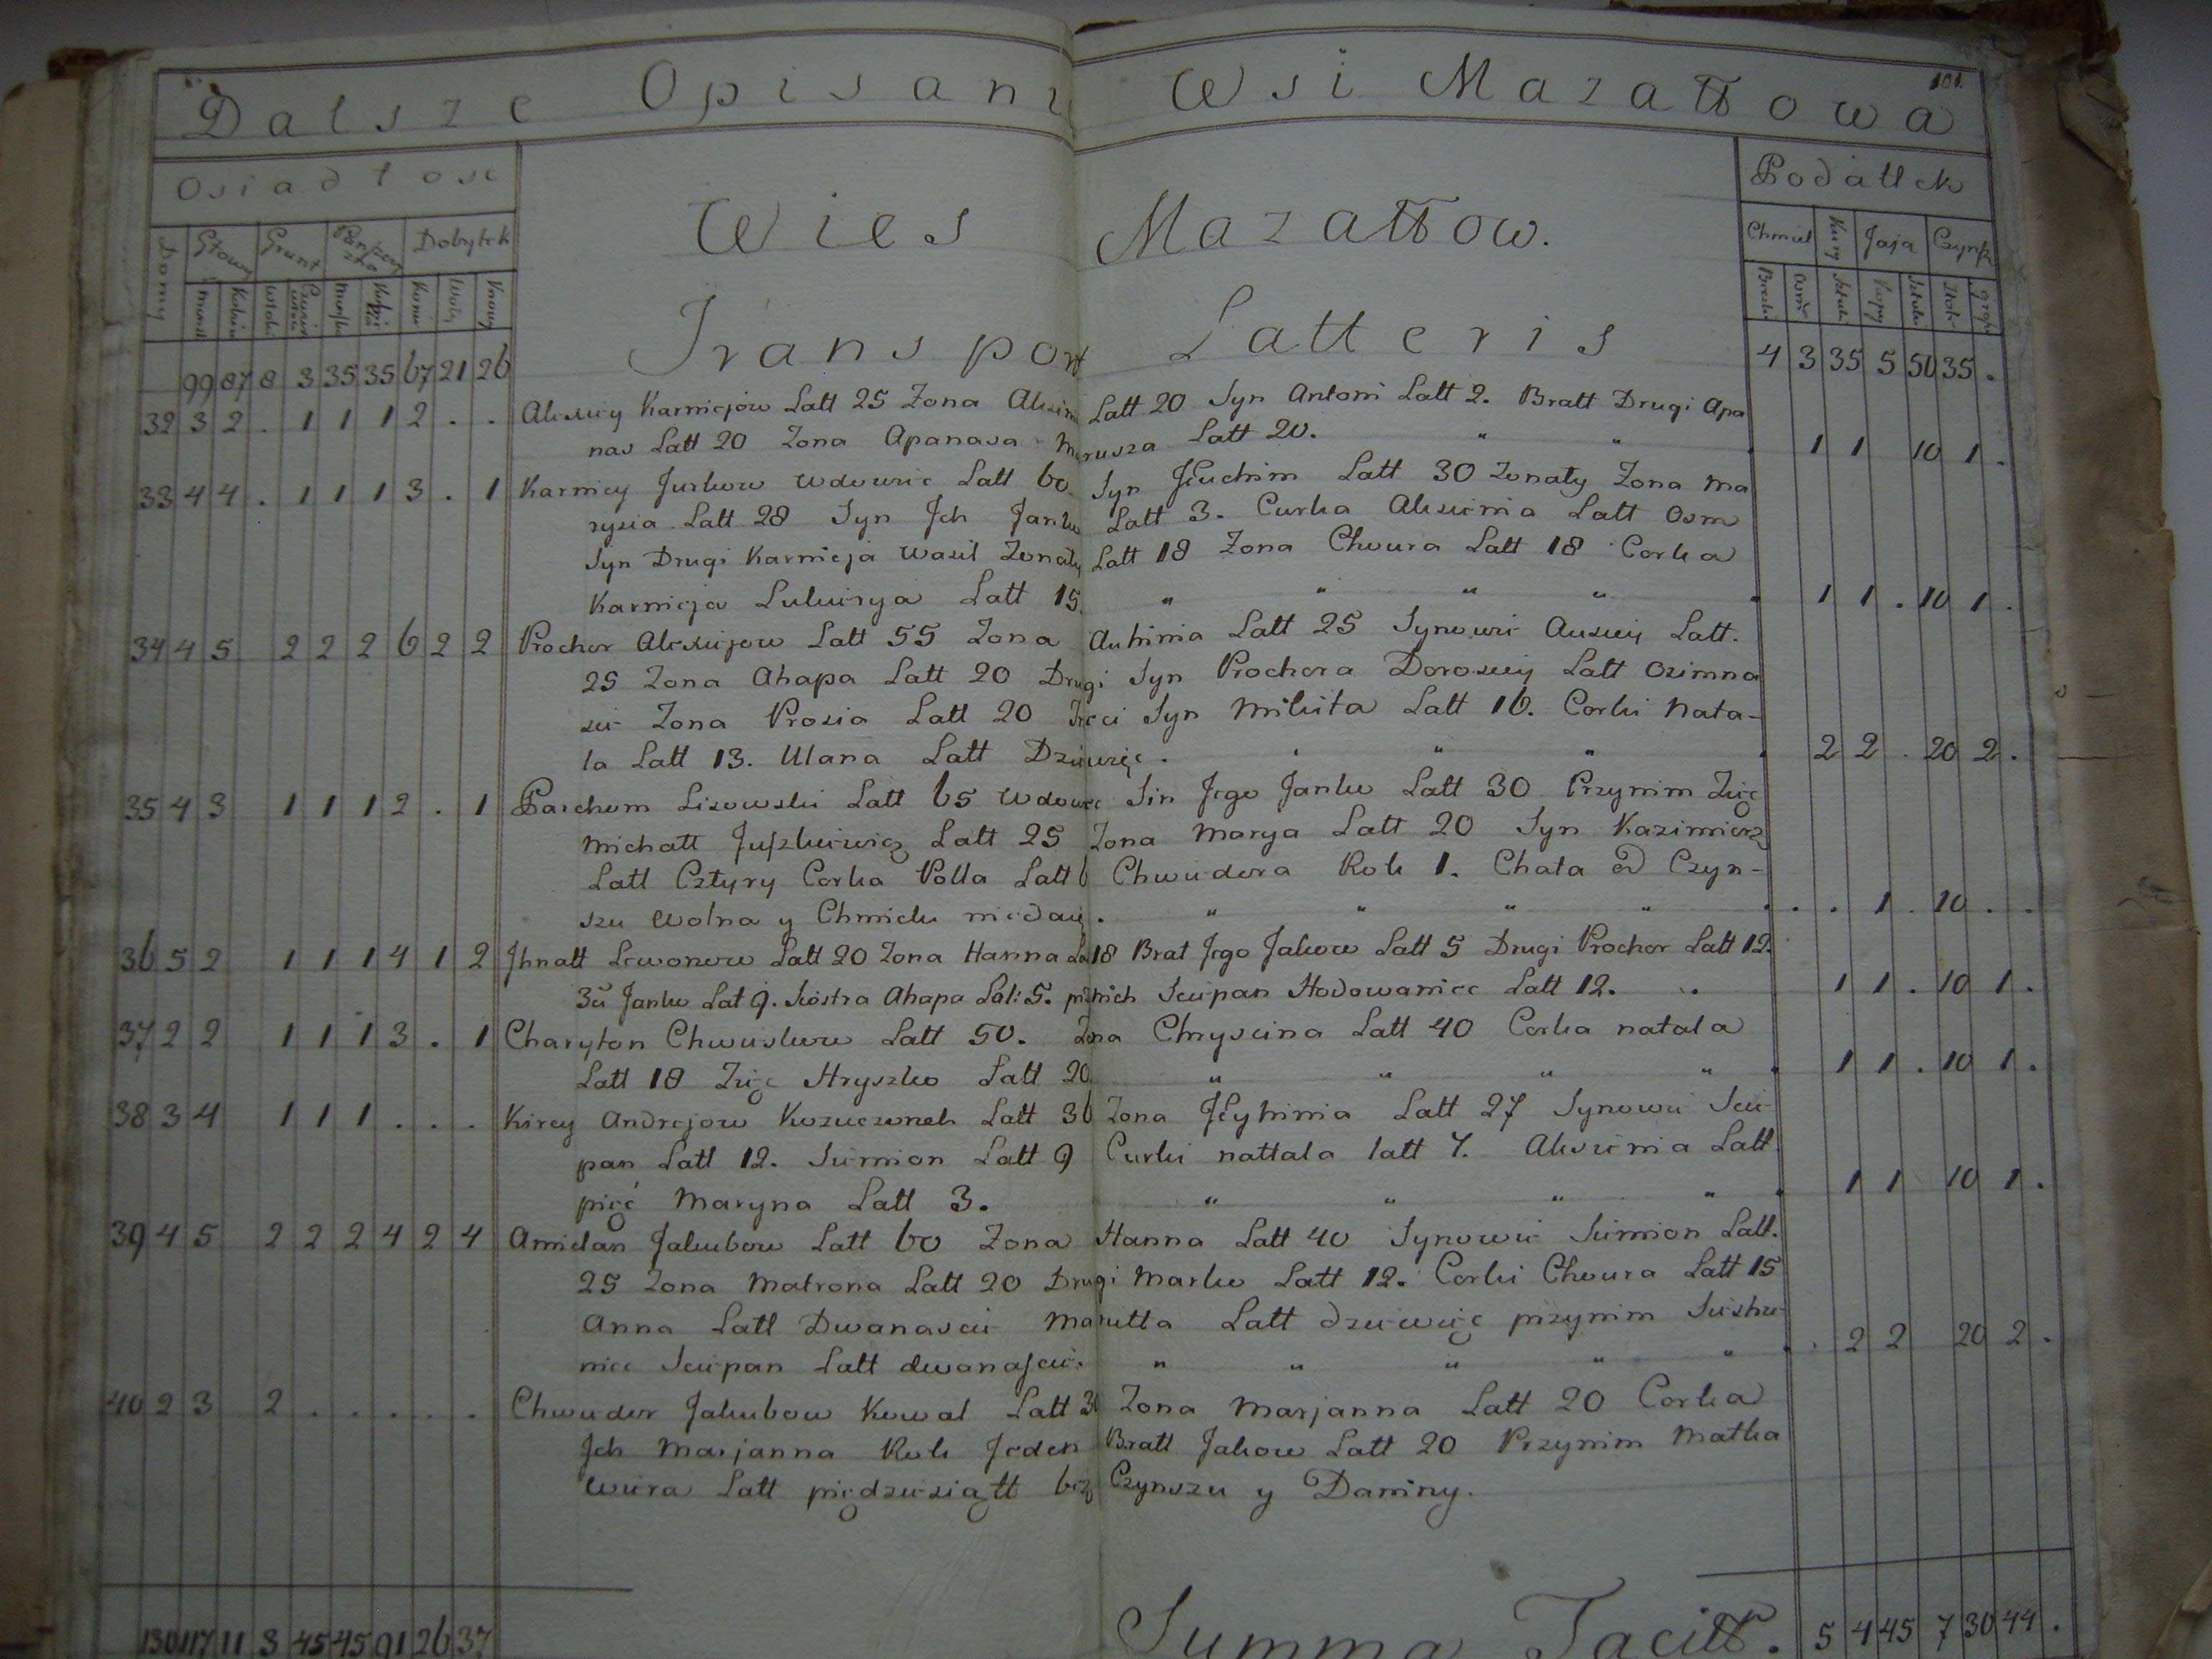 101.
Dalsze Opisani Wsi Mazałłowa
Osiadłosc
Podatlek
Domy Głowy Grunt Dobytek
Chmiel Kury Jaja Czynsz
Konie Woły
Wies Mazałłow.
Transport Latteris
99 87 8 3 35 35 67 21 26
4 3 35 5 50 35 .
32 3 2 . 1 1 1 2 . . Alexiey Karniejow Latt 25 Zona Latt 20 Syn Antoni Latt 2. Bratt Drugi Apa
nas Latt 20 Zona Apanasa Marusza Latt 20. " " 1 1 10 1 .
33 4 4 . 1 1 1 3 . 1 Karniey Jurkow wdowiec Latt 60. Syn Latt 30 Zonaty Zona Ma
rysia Latt 28 Syn Ich Janko Latt 3. Curka Latt Osm
Syn Drugi Karnieja Wasil Zonaty Latt 18 Zona Chwura Latt 18 Corka
Karnieja Latt 15. " " " " 1 1 . 10 1 .
34 4 5 2 2 2 6 2 2 Prochor Alexiejow Latt 55 Zona Auhinia Latt 25 Synowie Latt.
25 Zona Ahapa Latt 20 Drugi Syn Prochora Latt Osimna
scie Zona Prosia Latt 20 Trzeci Syn Mikita Latt 16. Corki Nata-
la Latt 13. Ulana Latt Dziewięc. " " " 2 2 . 20 2 .
35 4 3 1 1 1 2 . 1 Parchom Lisowski Latt 65 wdowiec Sin Jego Janko Latt 30 Przynim Zięc
Michałł Latt 25 Zona Marya Latt 20 Syn Kazimierz
Latt Cztyry Corka Polla Latt 6 Chwiedora Rok 1. Chata od Czyn-
szu Wolna y Chmielu niedaię. " " " " . . 1 . 10 . .
36 5 2 1 1 1 4 1 2 Ihnatt Lewonow Latt 20 Zona Hanna La 18 Brat Jego Jakow Latt 5 Drugi Prochor Latt 12.
3ci Janko Lat 9. Siostra Ahapa Lat: 5. przynich Sciepan Hodowaniec Latt 12. 1 1 . 10 1 .
37 2 2 1 1 1 3 . 1 Charyton Chwieskow Latt 50. Zona Chryscina Latt 40 Corka natala
Latt 18 Zięc Hryszko Latt 20 " " " " 1 1 . 10 1 .
38 3 4 1 1 1 . . . Kirey Andrejow Latt 36 Zona Latt 27 Synowie Scie-
pan Latt 12. Siemion Latt 9 Curki nattala latt 7. Latt
pięć Maryna Latt 3. " " " " 1 1 10 1 .
39 4 5 2 2 2 4 2 4 Amielan Jakubow Latt 60 Zona Hanna Latt 40 Synowie Siemion Latt.
25 Zona Matrona Latt 20 Drugi Marko Latt 12. Corki Chwura Latt 15
Anna Latt Dwanascie Marutta Latt dziewięc przynim
Sciepan Latt dwanascie. " " " " " . 2 2 20 2 .
40 2 3 2 . . . . . Chwiedor Jakubow Kowal Latt 30 Zona Marjanna Latt 20 Corka
Ich Marjanna Rok Jeden Bratt Jakow Latt 20 Przynim Matka
Wiera Latt piędziesiątt bez Czynszu y Daniny.
130 117 11 3 45 45 91 26 37
Summa Facitt. 5 4 45 7 30 44 .